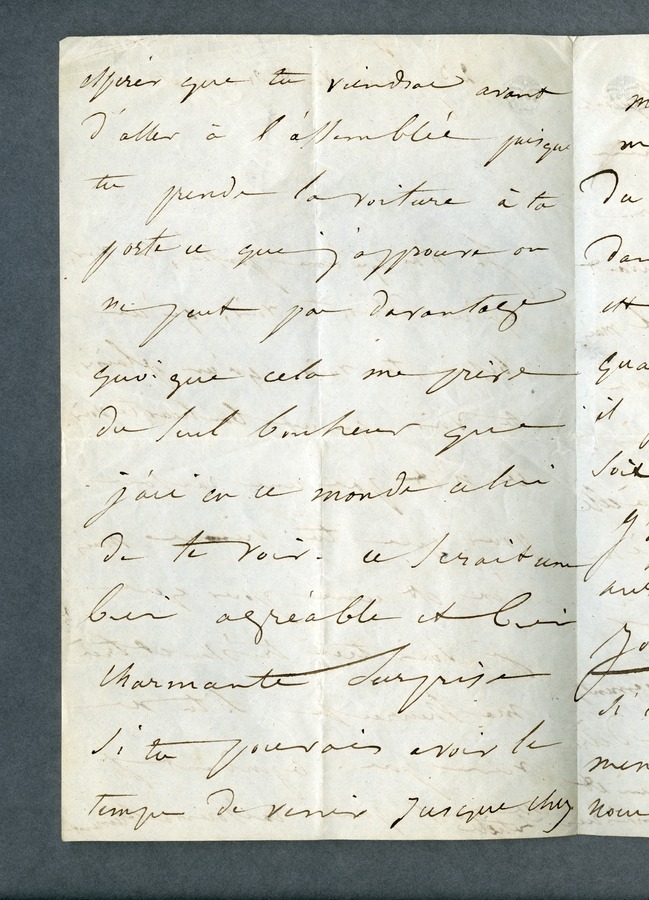 espérer que tu viendras avant
d'aller à l'assemblée puisque
tu prends la voiture à ta
porte ce que j'approuve on
ne peut pas davantage
quoi que cela me prive
du seul bonheur que
j'aie en ce monde celui
de te voir. ce serait une
bien agréable et bien
charmante surprise
si tu pouvais avoir le
temps de venir jusque chez
du
il
soit